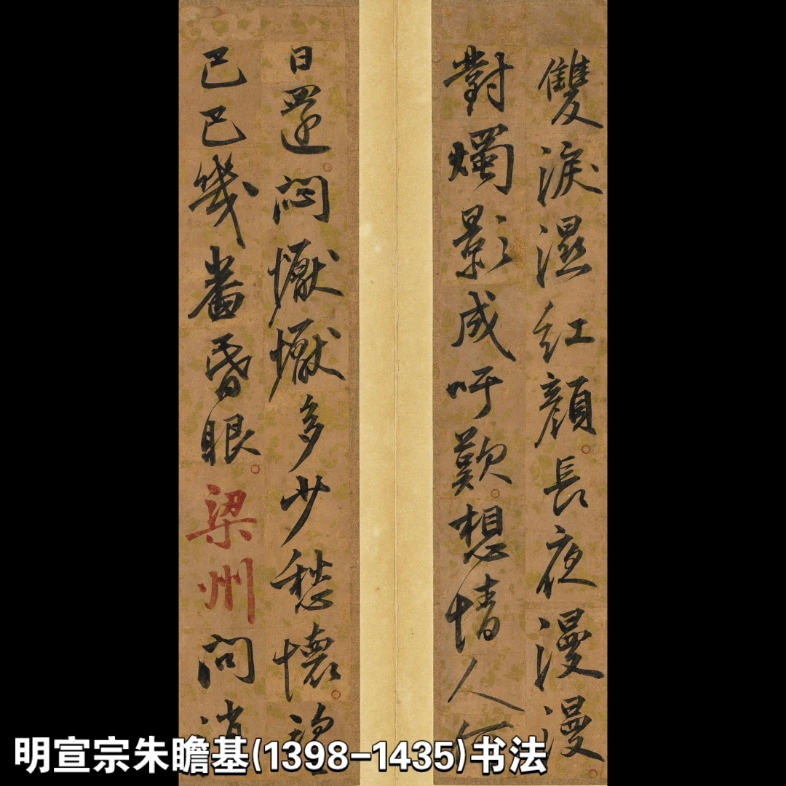 雙淚濕紅顏長夜漫漫
對燭影成吁歎想情人何
日還悶懨懨多少愁懷望
巴巴幾番昏眼梁州問消
明宣宗朱瞻基(1398-1435)书法